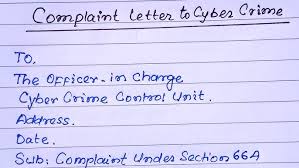 Complaint Letter to Cyber Crime
To,
The Officer-in Charge
Cyber Crime Control Unit.
Address.
Date.
Sub: Complaint Under Section 66A